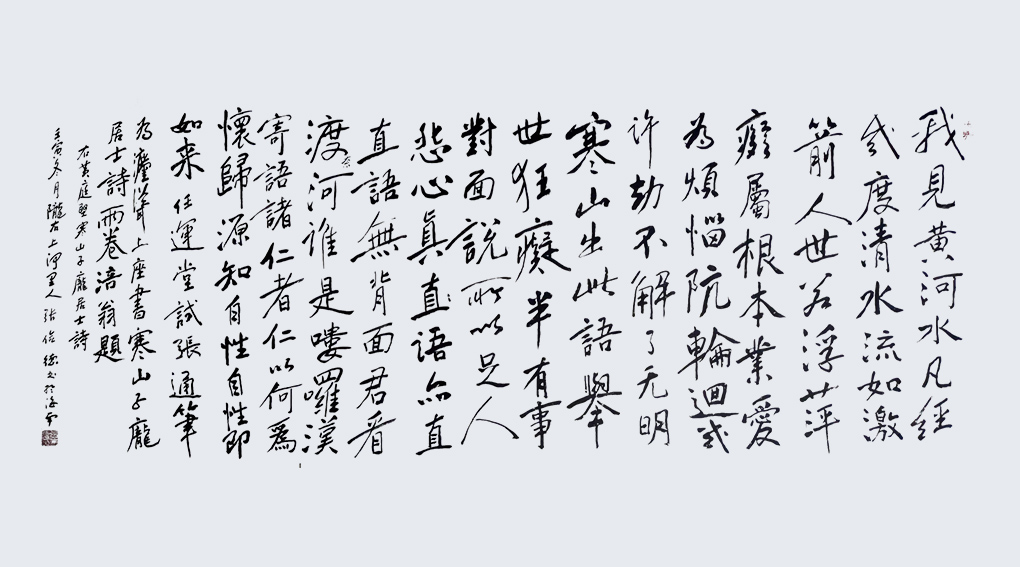 我見黄河水凡經
幾度清水流如激
箭人世若浮萍
癡屬根本業愛
為煩惱阬輪迴幾
許劫不解了无明
寒山出此語舉
世狂癡半有事
對面說所以足人
怨心真直語亦直
直語無背面君看
渡河誰是嘍囉漢
寄語諸仁者仁以何爲
懷歸源知自性自性即
如来任運堂試張通筆
為上座書寒山子龐
居士詩兩卷涪翁題
右黄庭堅寒山子龐居士詩
壬寅冬月隴右上人張